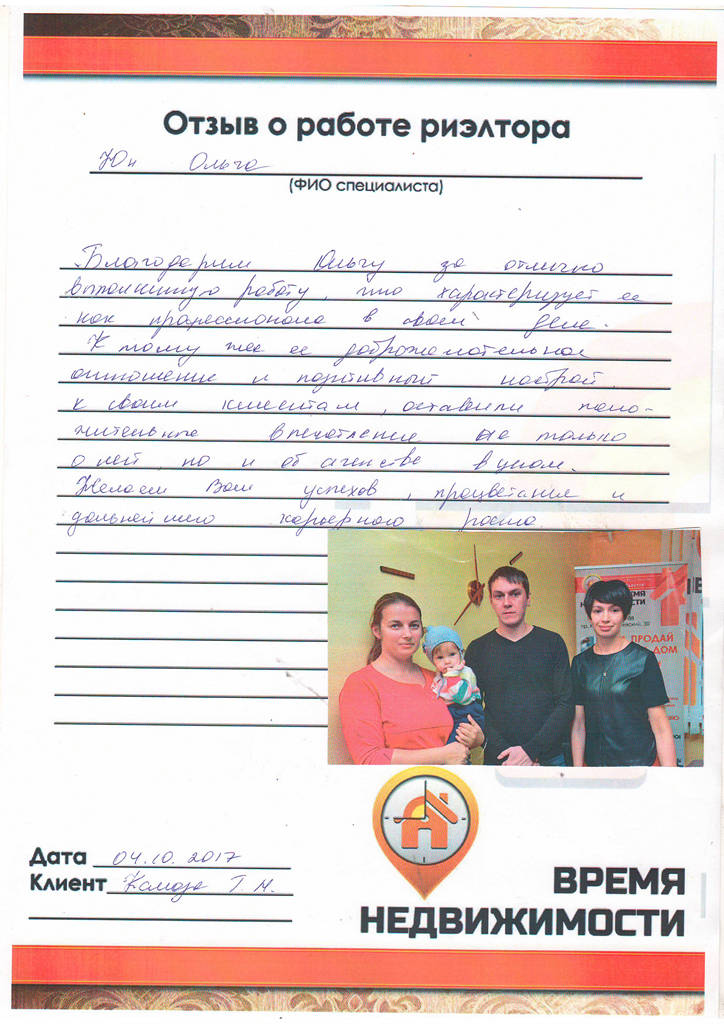 Отзыв о работе риэлтора
Юн Ольга
(ФИО специалиста)
Благодарим Ольгу за отлично
выполненную работу, что характеризует ее
как профессионала в своем деле.
К тому же ее доброжелательное
отношение и позитивный настрой
к своим клиентам, оставили поло-
жительное впечатление не только
о ней, но и об агенстве в целом.
Желаем Вам успехов, процветания и
дальнейшего карьерного роста
ПРОДАЙ
ДОМ
Дата 04.10.2017
Клиент Т. Н.
ВРЕМЯ
НЕДВИЖИМОСТИ